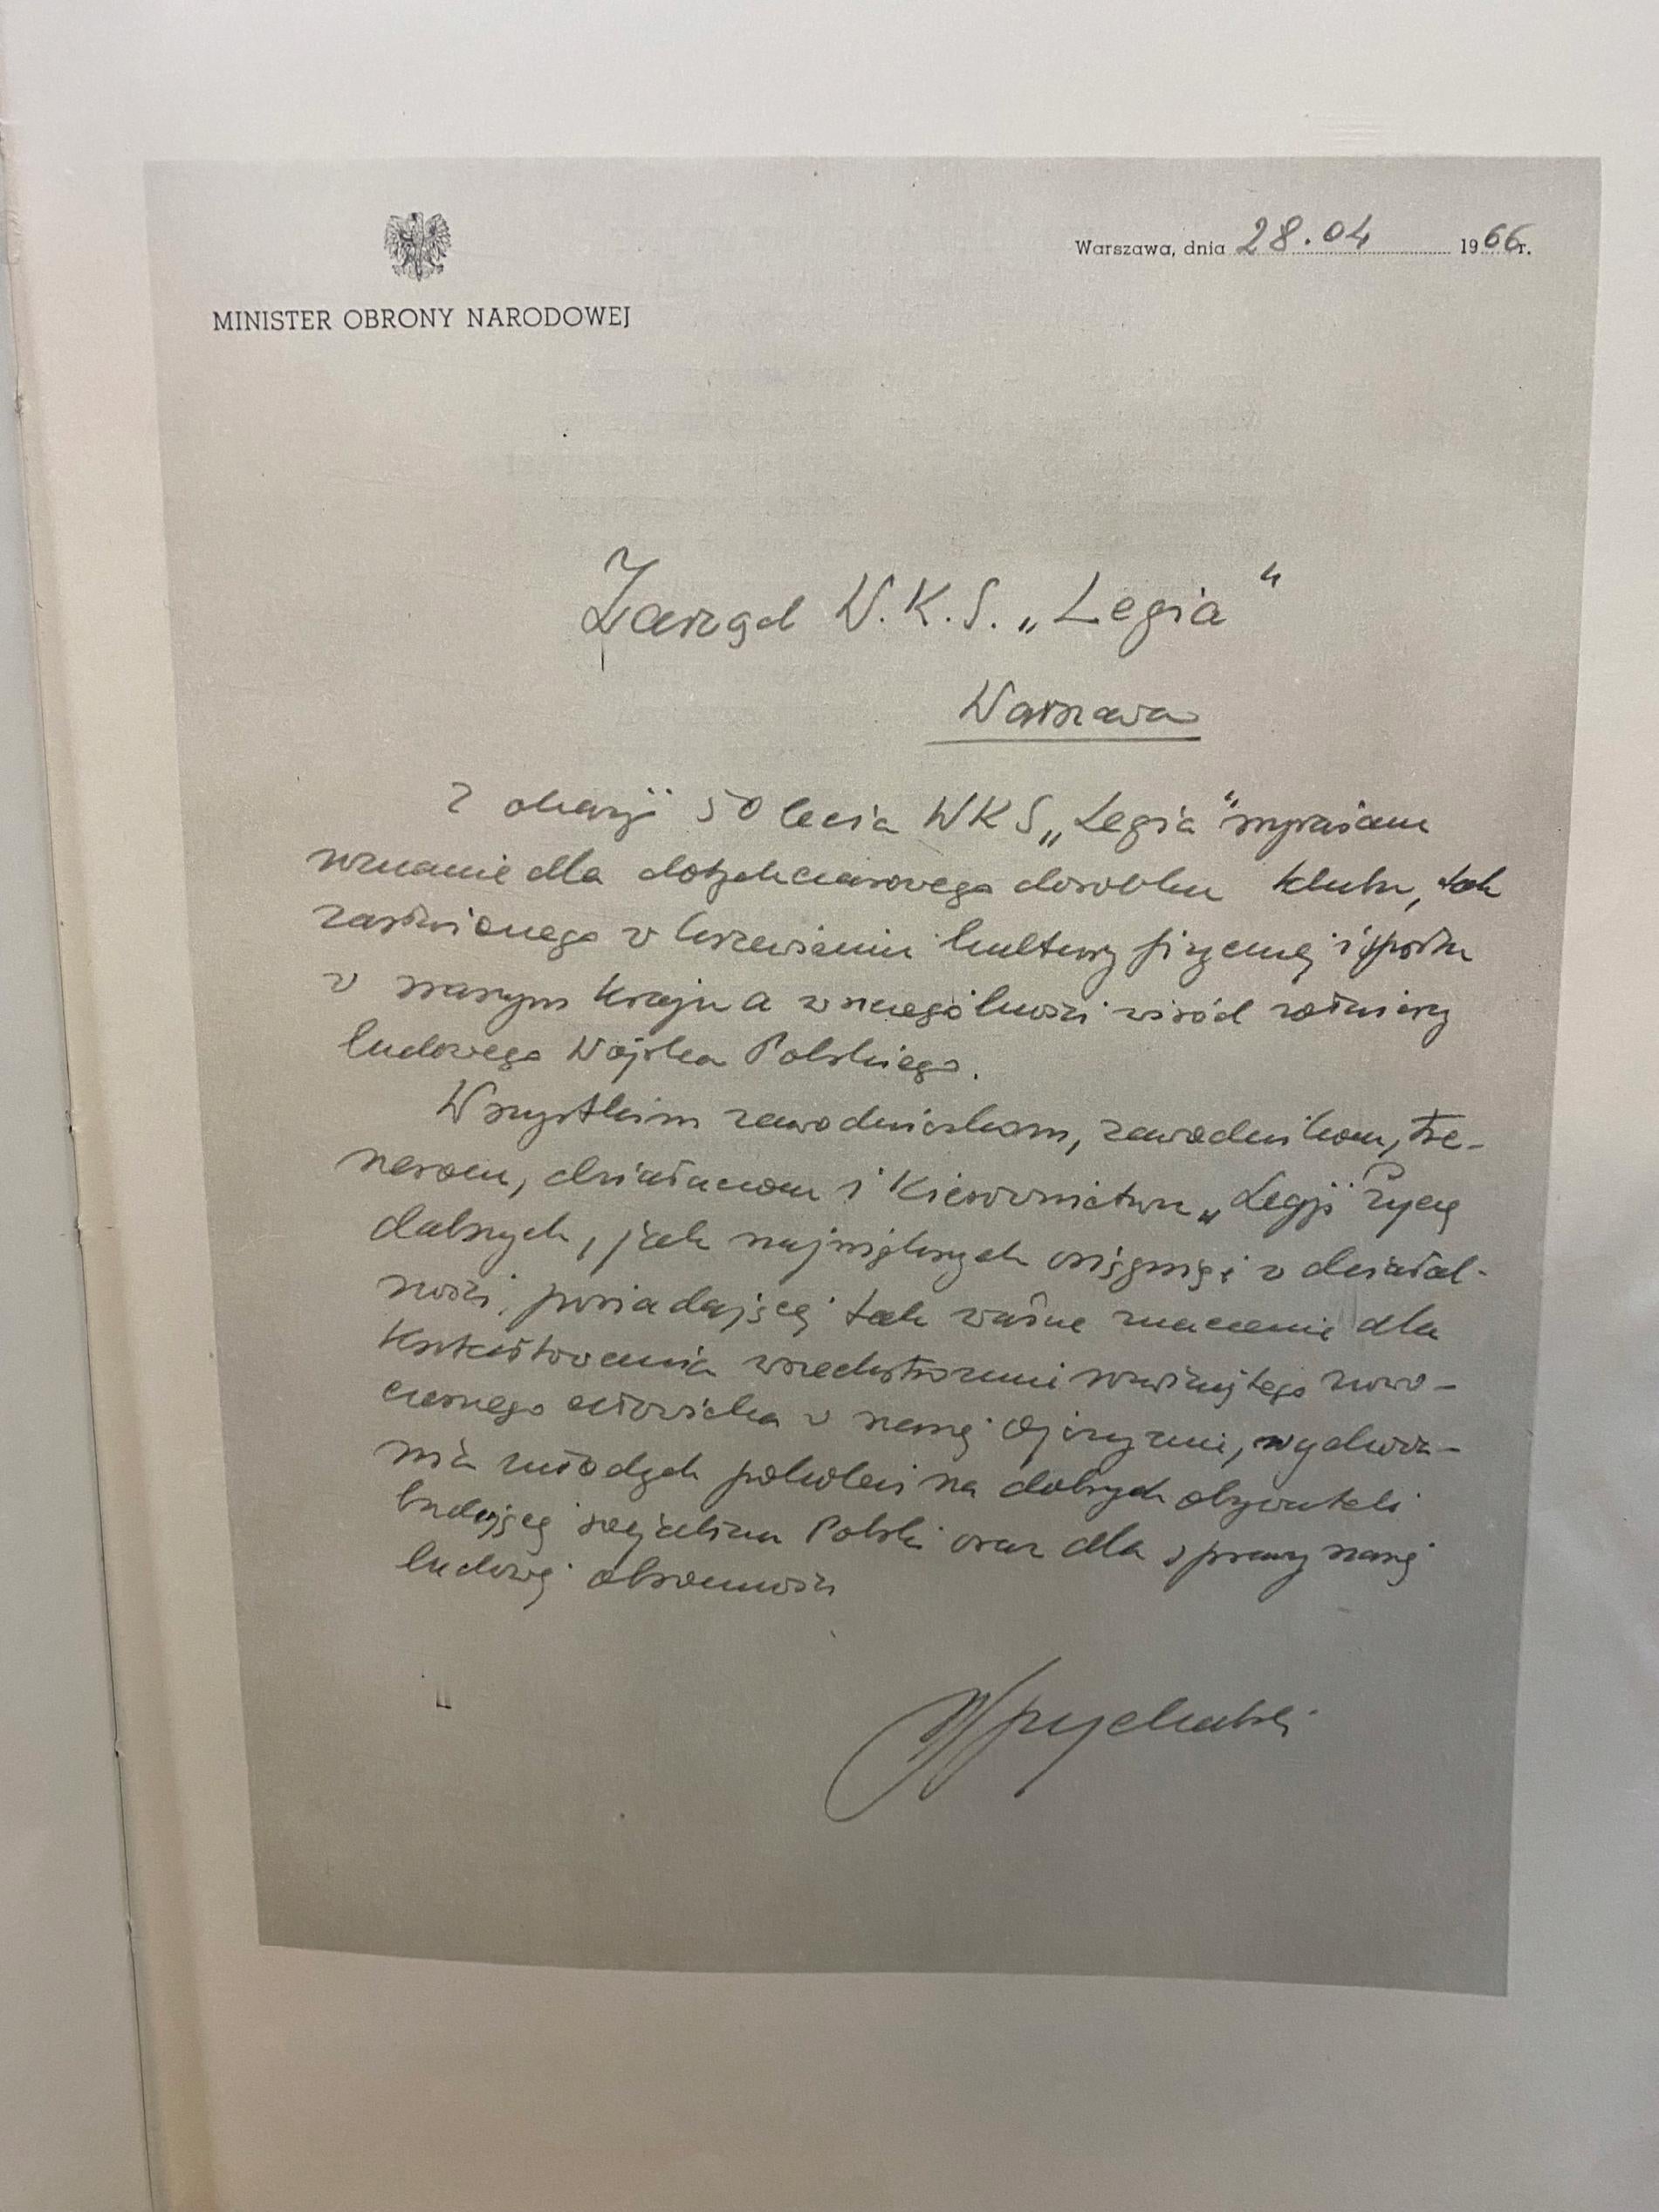 Warszawa, dnia 28.04 1966r.
MINISTER OBRONY NARODOWEJ
Zarząd W.K.S. „Legia“
Warszawa
Z okazji 50 lecia WKS „Legia“ wyrażam
uznanie dla dotychczasowego dorobku klubu, tak
zasłużonego w krzewieniu kultury fizycznej i sportu
w naszym kraju a w szczególności wśród żołnierzy
ludowego Wojska Polskiego.
Wszystkim zawodniczkom, zawodnikom, tre-
nerom, działaczom i kierownictwu „Legji“ życzę
dalszych, jak największych osiągnięć w działal-
ności, posiadającej tak ważne znaczenie dla
kształtowania wszechstronnie rozwiniętego nowo-
czesnego człowieka w naszej Ojczyźnie, wychowa-
nia młodych pokoleń na dobrych obywateli
budującej socjalizm Polski oraz dla sprawy naszej
ludowej obronności
MSpychalski